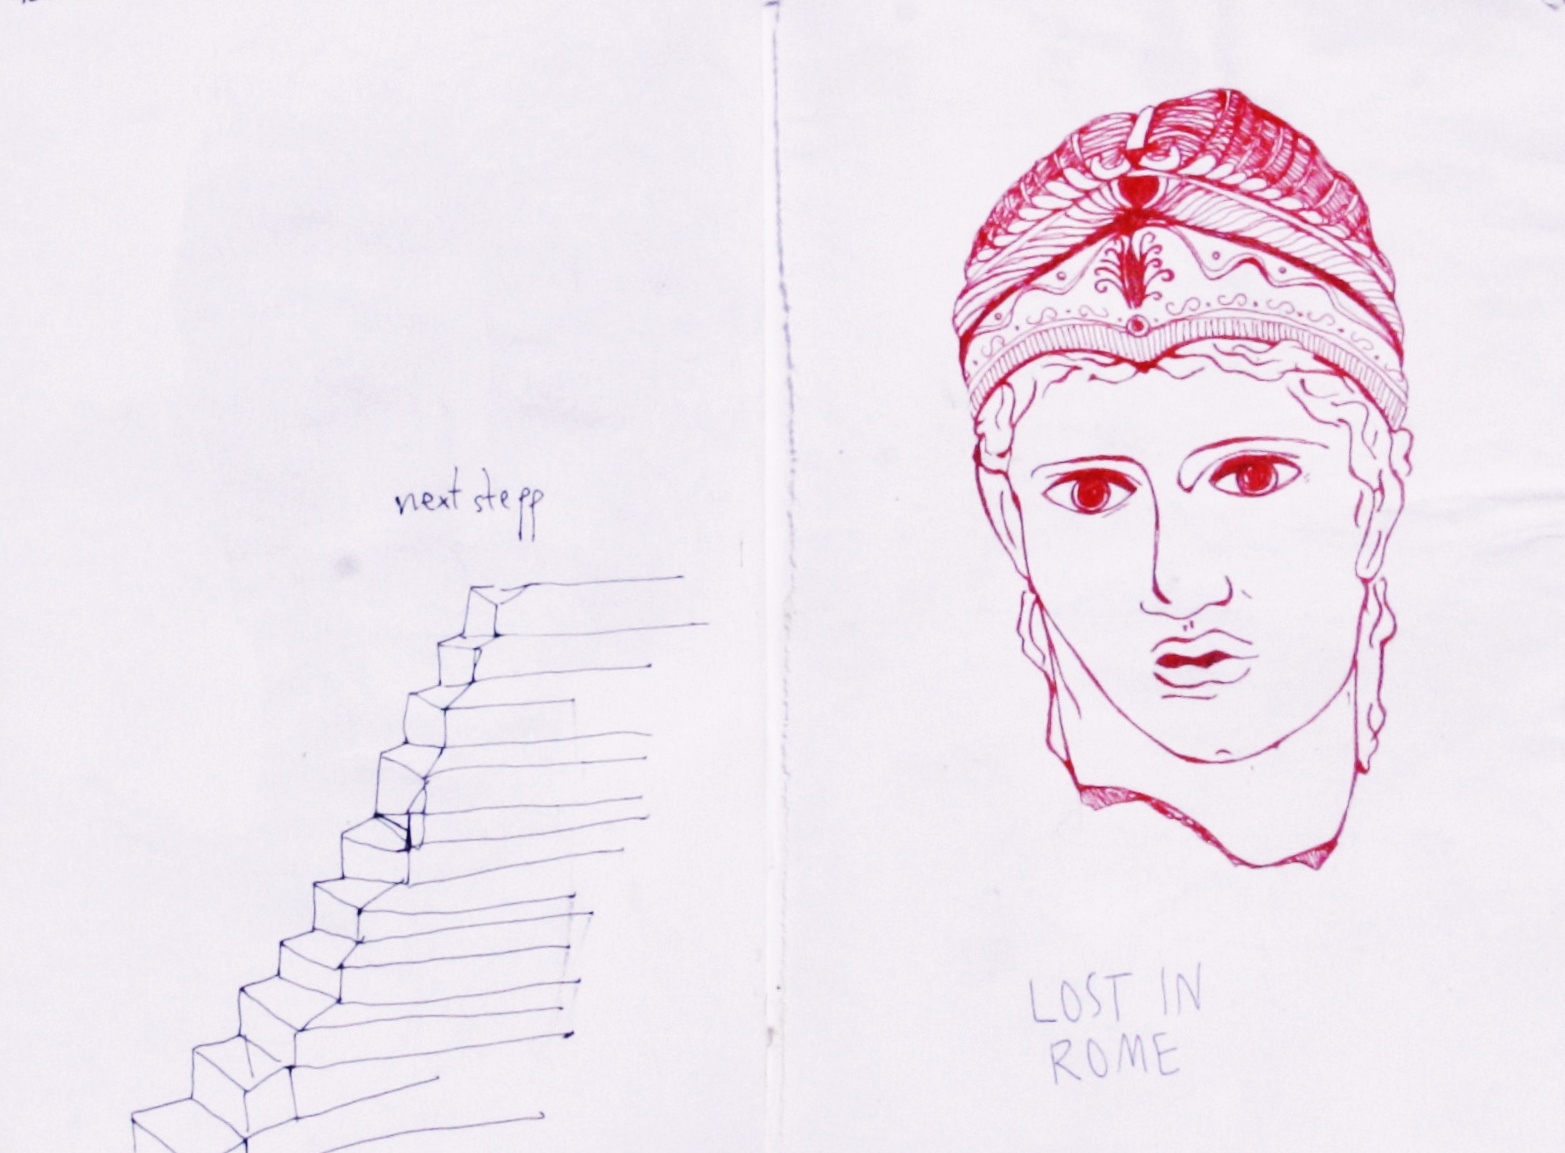 next stepp
LOST IN
ROME